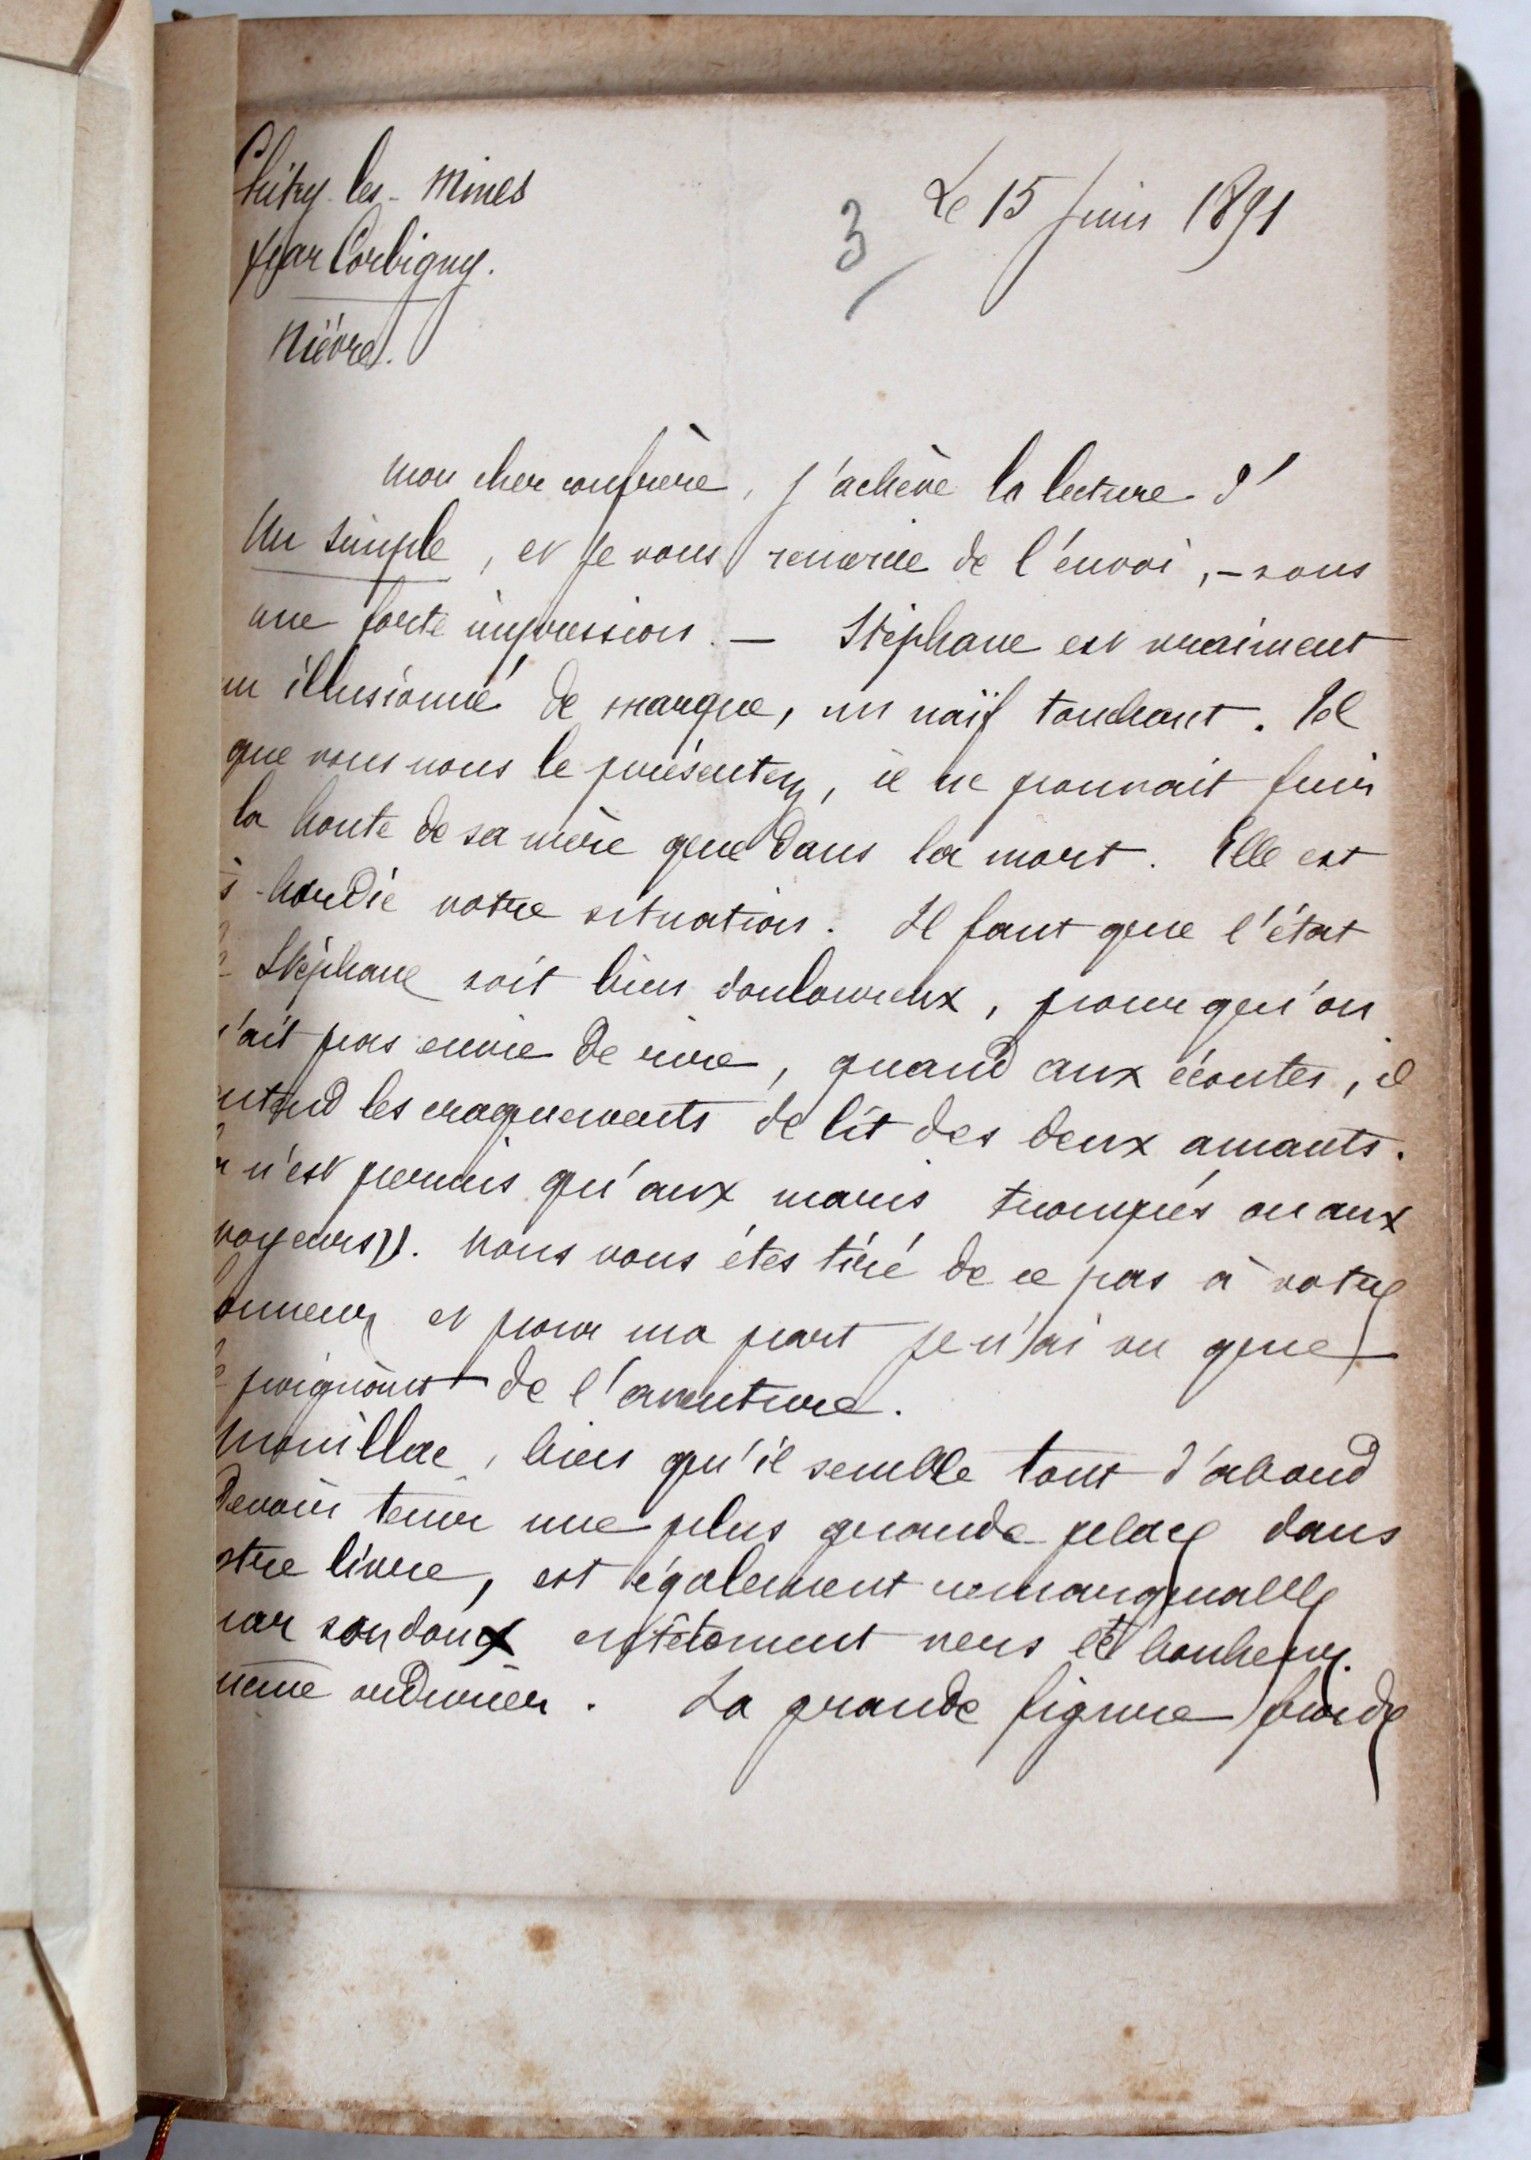 Chitry-les-Mines
par Corbigny.
Nièvre.
3
Le 15 juin 1891
Mon cher confrère, j'achève la lecture d'
Un Simple, et je vous remercie de l'envoi, – sous
une forte impression. — Stéphane est vraiment
un illusionné de marque, un naïf touchant. Tel
que vous nous le présentez, il ne pouvait fuir
la honte de sa mère que dans la mort. Elle est
s hardie votre situation. Il faut que l'état
Stéphane soit bien douloureux, pour qu'on
n'ait pas envie de rire, quand aux écoutes, il
entend les craquements de lit des deux amants.
n'est permis qu'aux maris trompés ou aux
voyeurs)). Vous vous êtes tiré de ce pas à votre
honneur et pour ma part je n'ai vu que
poignant de l'aventure.
Mouillac, bien qu'il semble tout d'abord
devoir tenir une plus grande place dans
otre livre, est également remarquable
par son doux entêtement vers le bonheur
même ordurier. La grande figure froide